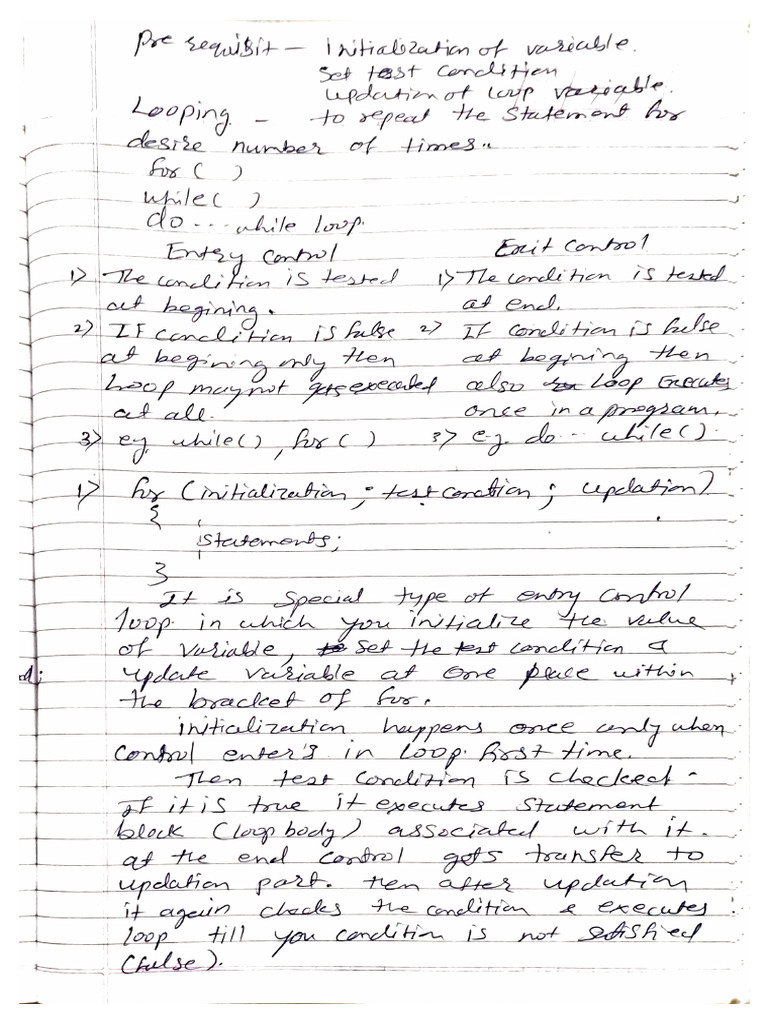 Pre requisit – Initialization of variable.
Set test condition
updation of loop variable.
Looping – to repeat the statement for
desire number of times..
for ( )
while( )
do ... while loop.
Entry Control    Exit Control
1) The condition is tested    1) The condition is tested
at begining.    at end.
2) IF condition is false    2) If condition is false
at begining only then    at begining then
Loop may not gets executed    also Loop Executes
at all.    once in a program.
3) eg. while(), for()    3) e.g. do... while().
1) for (initialization; test condtion; updation)
{
statements;
}
It is Special type of entry control
loop in which you initialize the value
of variable, set the test condition &
update variable at one place within
the bracket of for.
initialization happens once only when
control enter's in loop first time.
Then test condition is checked.
If it is true it executes statement
block (loop body) associated with it.
at the end control gets transfer to
updation part. then after updation
it again checks the condition & executes
loop till you condition is not satisfied
(false).